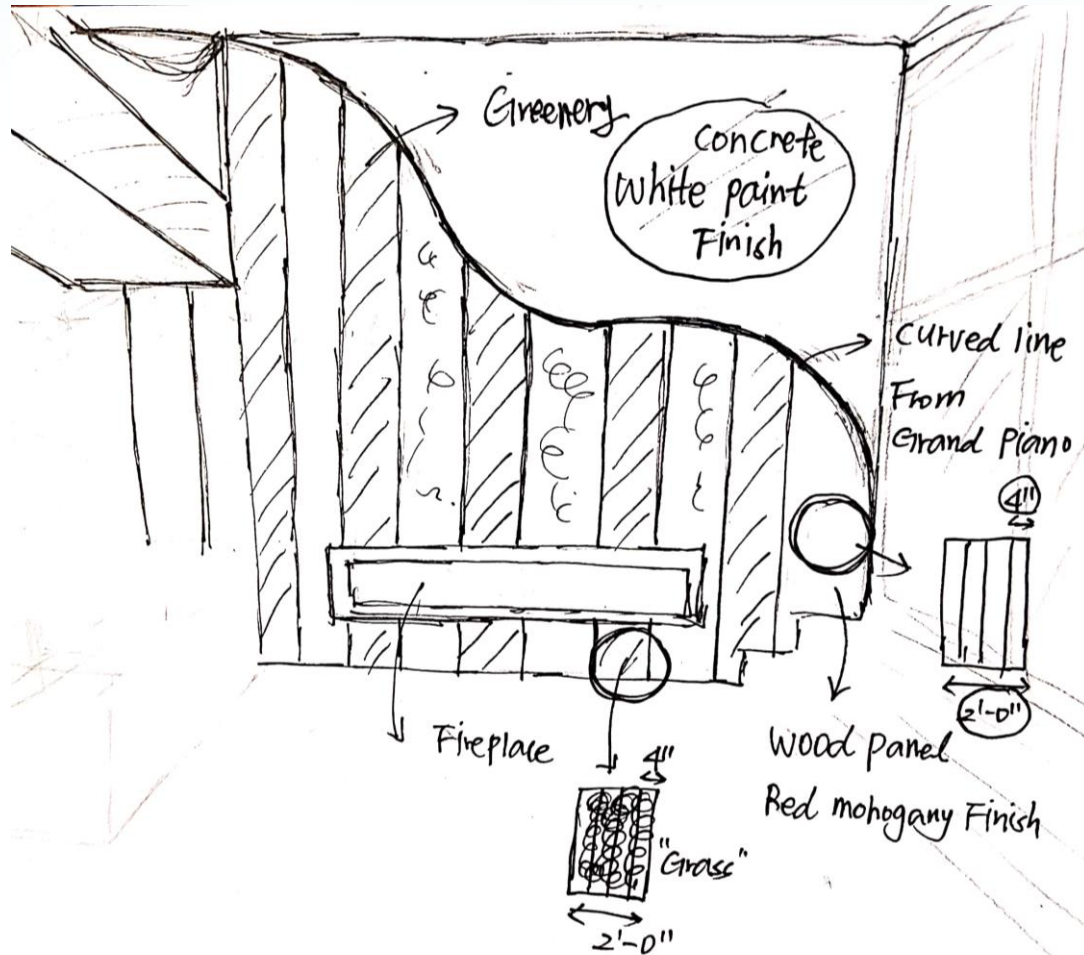 Greenery
Concrete
White paint
Finish
Curved line
From
Grand Piano
4"
2'-0"
Fireplace
Wood panel
Red mohogany Finish
4"
"Grass"
2'-0"